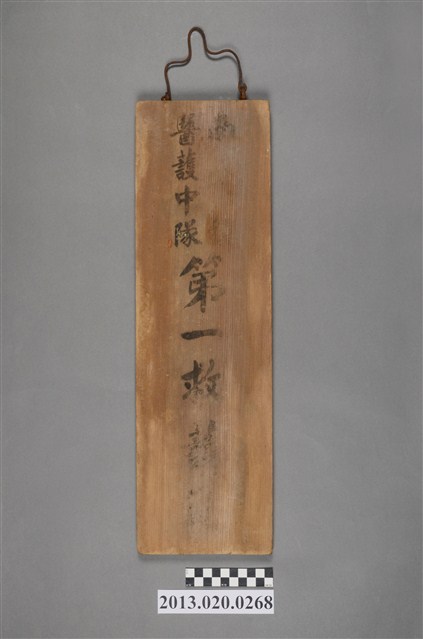 醫護中隊
第一救護
2013.020.0268